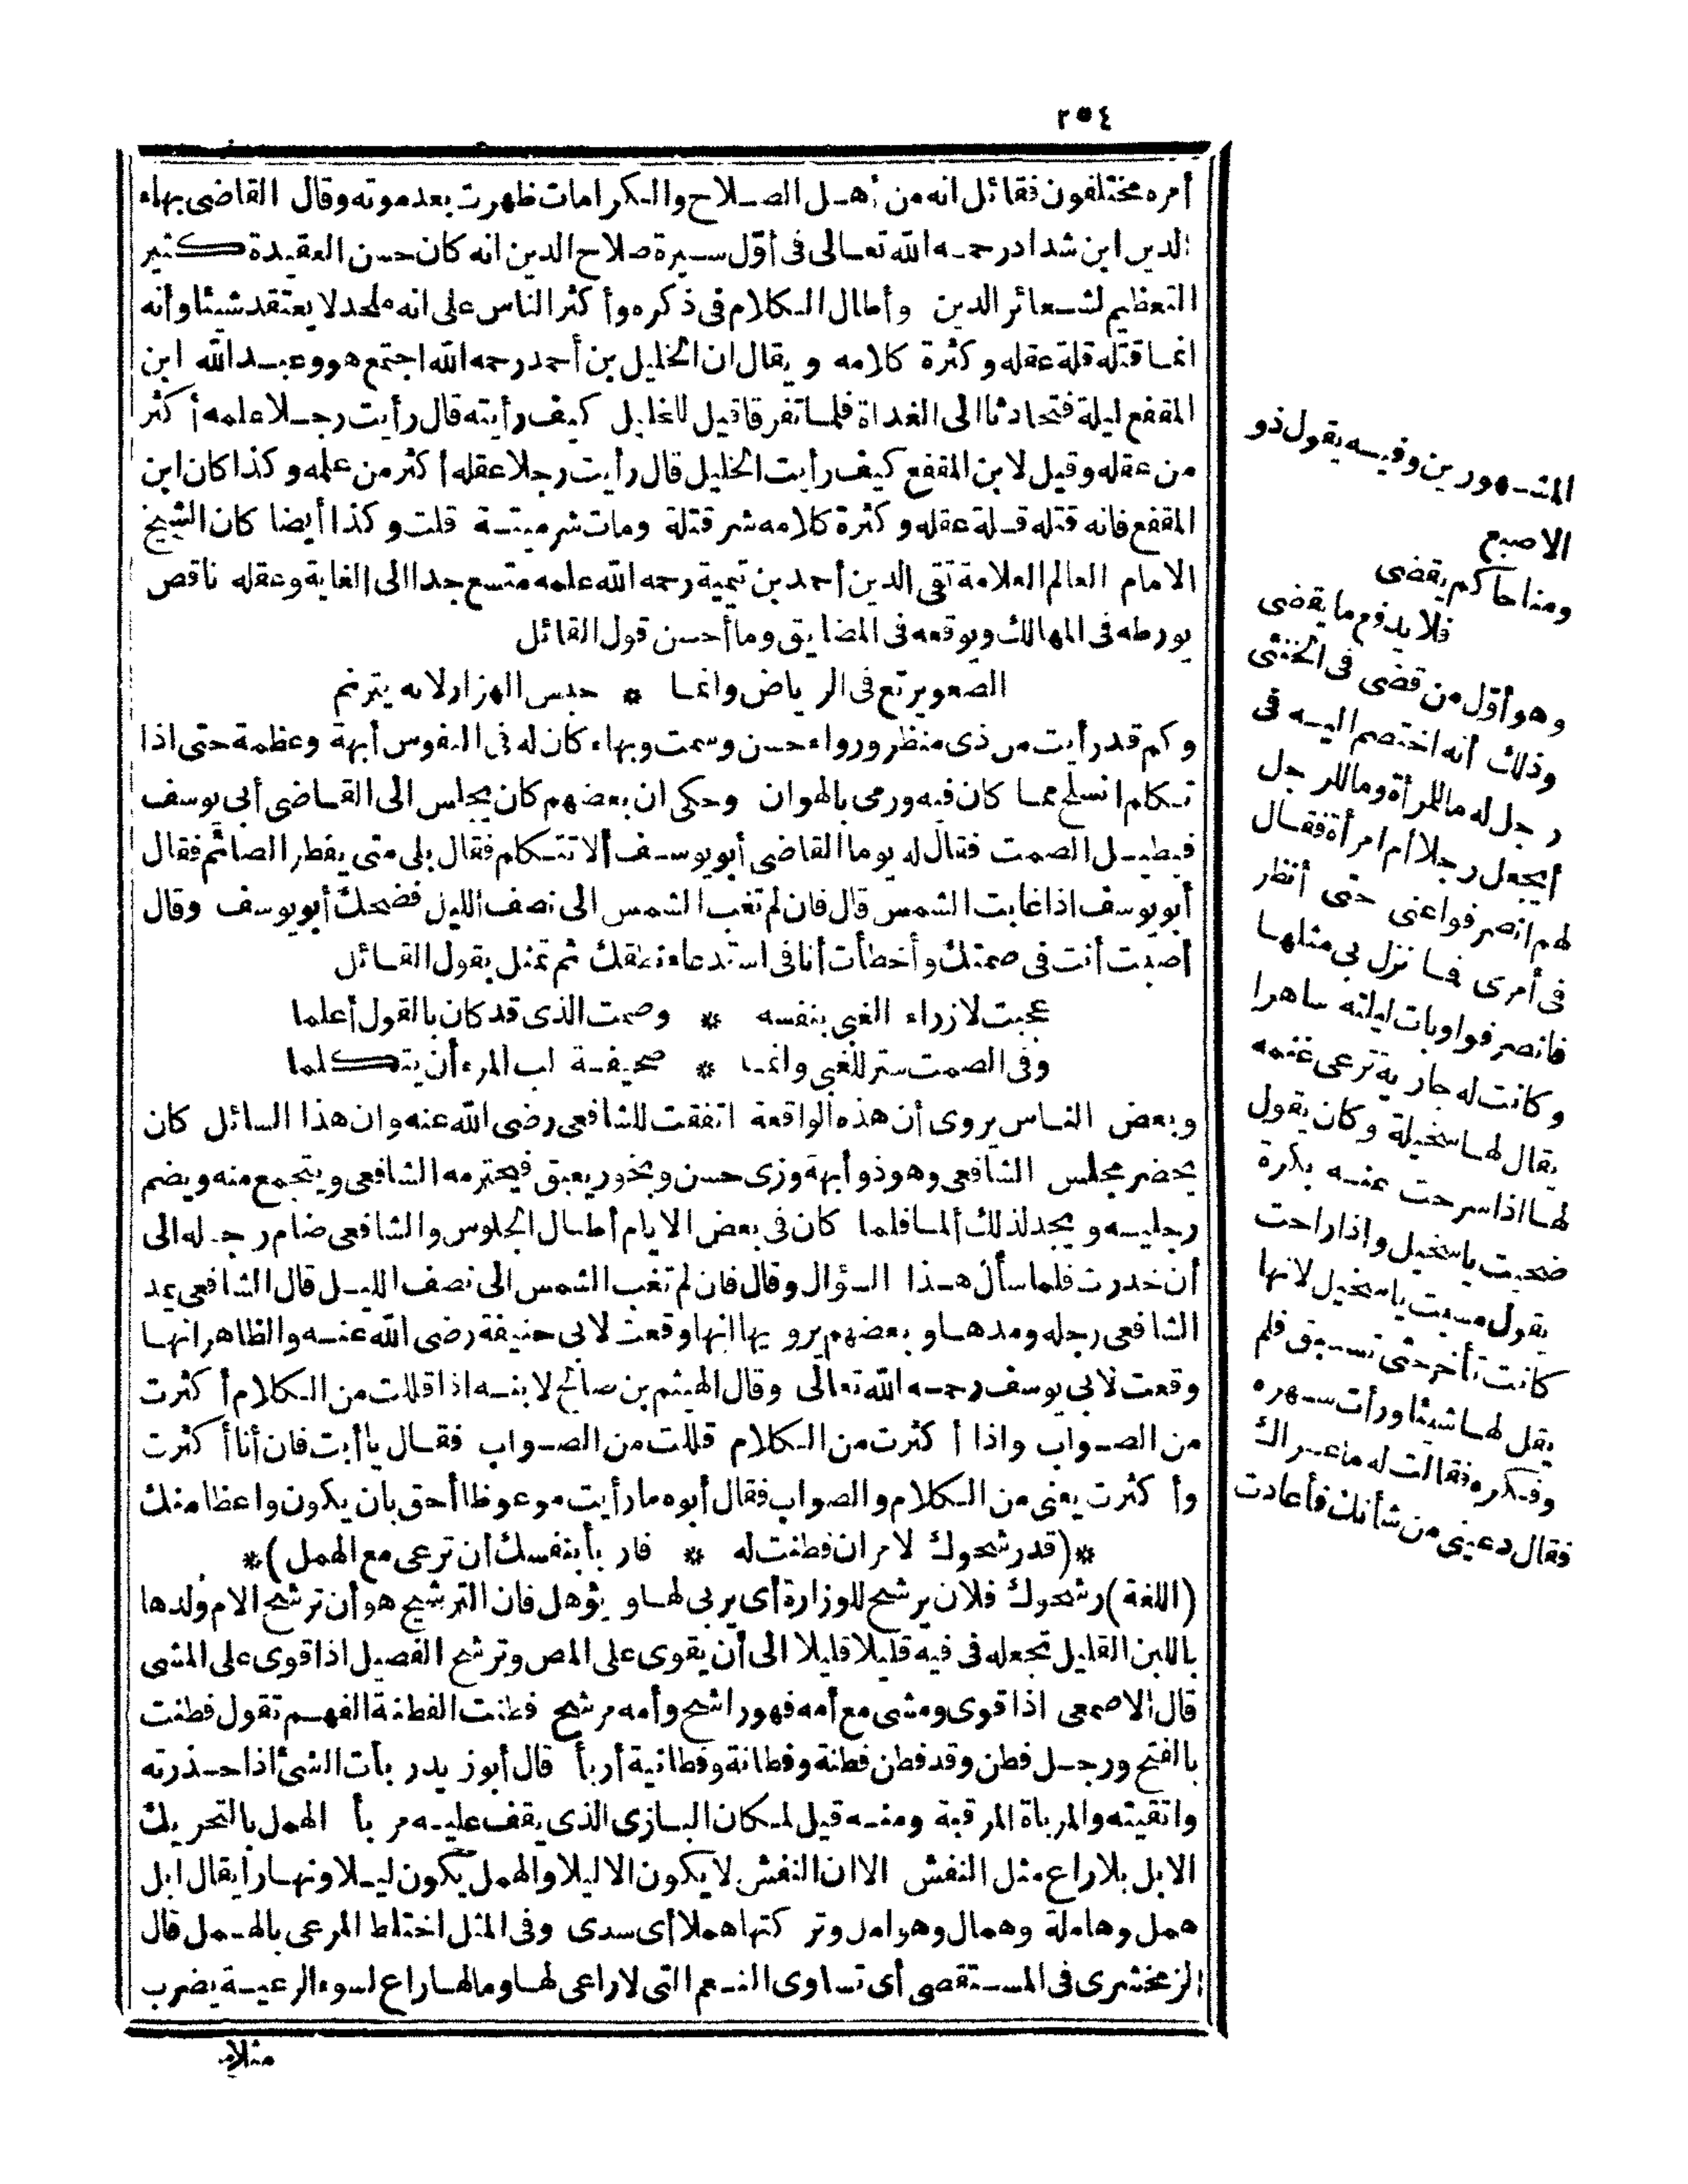 ٢٥٤
أمره مختلفون فقائل انه من أهل الصلاح والكرامات ظهرت بعد موته وقال القاضى بهاء
الدين ابن شداد رحمه الله تعالى فى أوّل سيرة صلاح الدين انه كان حسن العقيدة كثير
التعظيم لشعائر الدين وأطال الكلام فى ذكره وأكثر الناس على انه ملحد لا يعتقد شيئا وأنه
انما قتله قلة عقله وكثرة كلامه ويقال ان الخليل بن أحمد رحمه الله اجتمع هو وعبد الله ابن
المقفع ليلة فتحادثا الى الغداة فلما تفرقا قيل للخليل كيف رأيته قال رأيت رجلا علمه أكثر
من عقله وقيل لابن المقفع كيف رأيت الخليل قال رأيت رجلا عقله أكثر من علمه وكذا كان ابن
المقفع فانه قتله قلة عقله وكثرة كلامه شر قتلة ومات شر ميتة قلت وكذا أيضا كان الشيخ
الامام العالم العلامة تقى الدين أحمد بن تيمية رحمه الله علمه متسع جدا الى الغاية وعقله ناقص
يورطه فى المهالك ويوقعه فى المضايق وما أحسن قول القائل
الصعو يرتع فى الرياض وانما * حبس الهزار لانه يترنم
وكم قد رأيت من ذى منظر ورواء حسن وسمت وبهاء كان له فى النفوس أبهة وعظمة حتى اذا
تكلم انسلخ مما كان فيه ورمى بالهوان وحكى ان بعضهم كان يجلس الى القاضى أبى يوسف
فيطيل الصمت فقال له يوما القاضى أبو يوسف ألا تتكلم فقال بلى متى يفطر الصائم فقال
أبو يوسف اذا غابت الشمس قال فان لم تغب الشمس الى نصف الليل فضحك أبو يوسف وقال
أصبت أنت فى صمتك وأخطأت أنا فى استدعاء نطقك ثم تمثل بقول القائل
عجبت لازراء الغبى بنفسه * وصمت الذى قد كان بالقول أعلما
وفى الصمت ستر للغبى وانما * صحيفة لب المرء أن يتكلما
وبعض الناس يروى أن هذه الواقعة اتفقت للشافعى رضى الله عنه وان هذا السائل كان
يحضر مجلس الشافعى وهو ذو أبهة وزى حسن وبخور يعبق فيحترمه الشافعى ويتجمع منه ويضم
رجليه ويجد لذلك ألما فلما كان فى بعض الايام أطال الجلوس والشافعى ضام رجله الى
أن خدرت فلما سأل هذا السؤال وقال فان لم تغب الشمس الى نصف الليل قال الشافعى يمد
الشافعى رجله ومدها وبعضهم يرويها انها وقعت لابى حنيفة رضى الله عنه والظاهر انها
وقعت لابى يوسف رحمه الله تعالى وقال الهيثم بن صالح لابنه اذا قللت من الكلام أكثرت
من الصواب واذا أكثرت من الكلام قللت من الصواب فقال يا أبت فان أنا أكثرت
وأكثرت يعنى من الكلام والصواب فقال أبوه ما رأيت موعوظا أحق بان يكون واعظا منك
*(قد رشحوك لامر ان فطنت له * فاربأ بنفسك أن ترعى مع الهمل)*
(اللغة) رشحوك فلان يرشح للوزارة أى يربى لها ويؤهل فان الترشيح هو أن ترشح الام ولدها
باللبن القليل تجعله فى فيه قليلا قليلا الى أن يقوى على المص وترشح الفصيل اذا قوى على المشى
قال الاصمعى اذا قوى ومشى مع أمه فهو راشح وأمه مرشح فطنت الفطنة الفهم تقول فطنت
بالفتح ورجل فطن وقد فطن فطنة وفطانة وفطانية أربأ قال أبو زيد ربأت الشئ اذا حذرته
واتقيته والمرباة المرقبة ومنه قيل لمكان البازى الذى يقف عليه مربأ الهمل بالتحريك
الابل بلا راع مثل النفش الا ان النفش لا يكون الا ليلا والهمل يكون ليلا ونهارا يقال ابل
همل وهاملة وهمال وهوامل وتركتها هملا أى سدى وفى المثل اختلط المرعى بالهمل قال
الزمخشرى فى المستقصى أى تساوى النعم التى لا راعى لها وما لها راع لسوء الرعية يضرب
مثلا
المشهورين وفيه يقول ذو
الاصبع
ومنا حاكم يقضى
فلا يدفع ما يقضى
وهو أوّل من قضى فى الخنثى
وذلك أنه اختصم اليه فى
رجل له ما للمرأة وما للرجل
أيجعل رجلا أم امرأة فقال
لهم انصرفوا عنى حتى أنظر
فى أمرى فما نزل بى مثلها
فانصرفوا وبات ليلته ساهرا
وكانت له جارية ترعى غنمه
يقال لها سخيلة وكان يقول
لها اذا سرحت عنه بكرة
ضحيت يا سخيل واذا راحت
يقول مسيت يا سخيل لانها
كانت تأخر حتى تسبق فلم
يقل لها شيئا ورأت سهره
وفكره فقالت له ما عراك
فقال دعينى من شأنك فأعادت